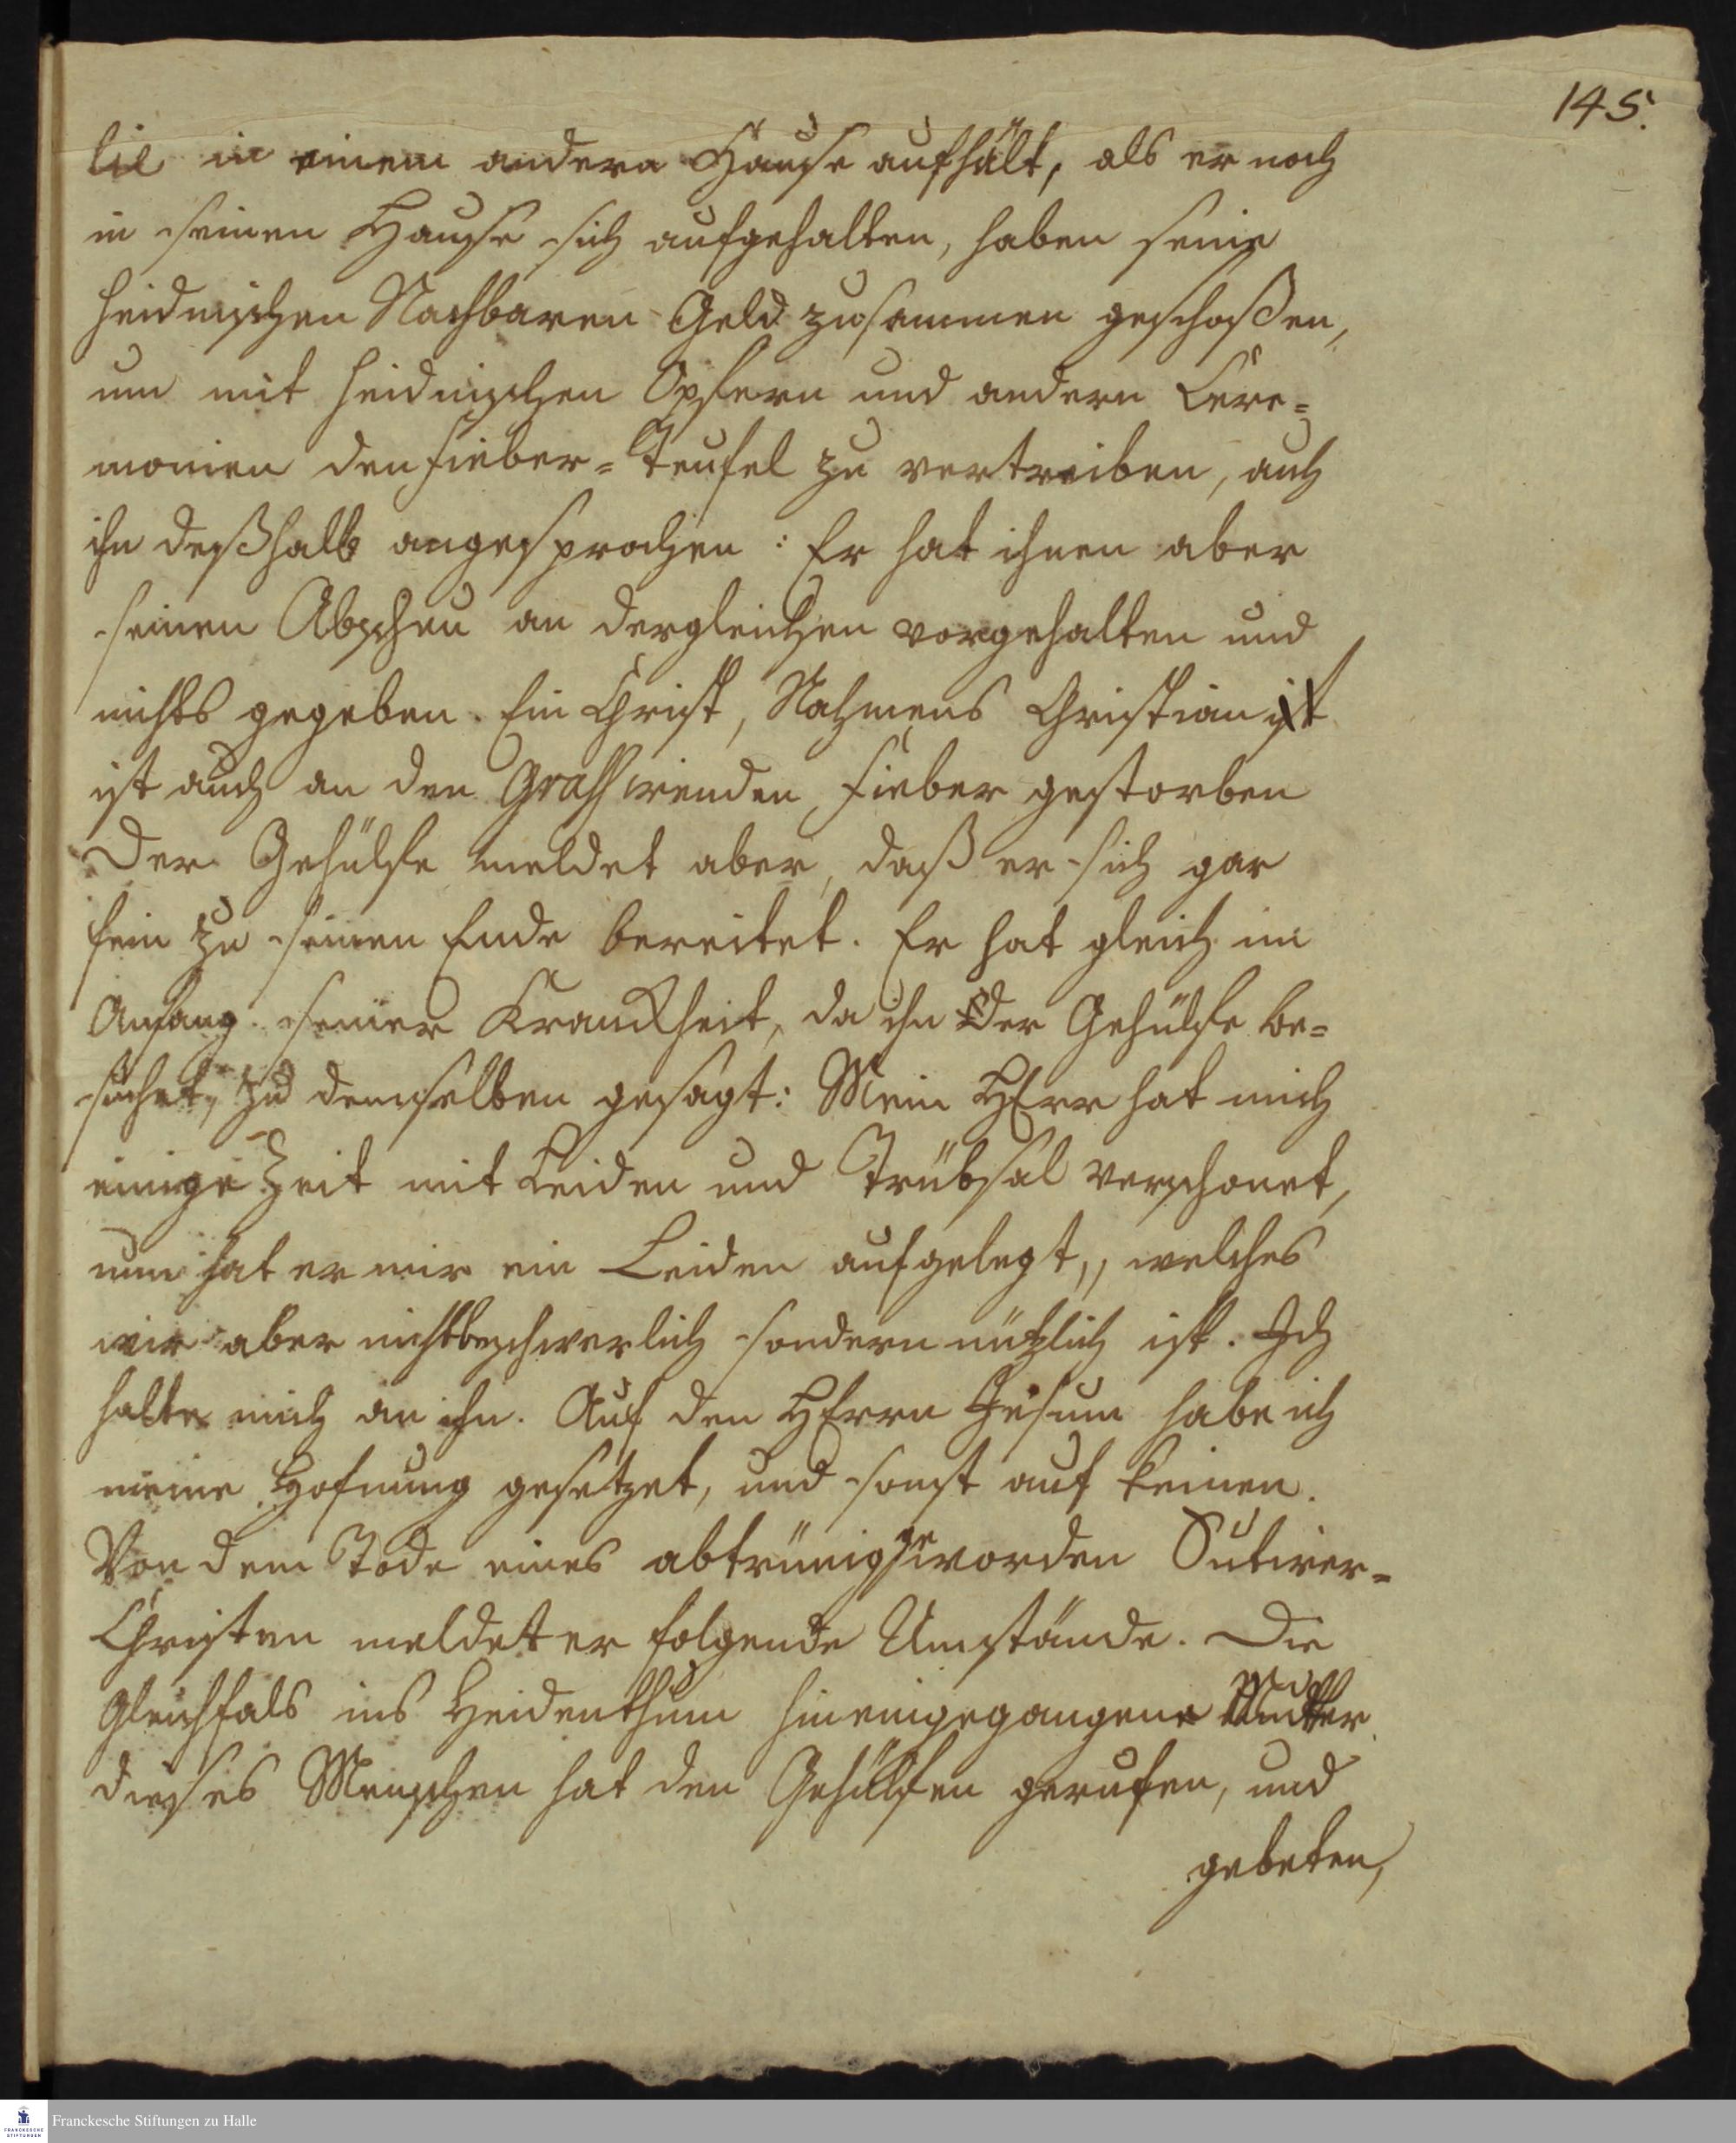 145.
lie in einem andern Hause aufhält, als er noch
in seinen Hause sich aufgehalten, haben seine
heidnischen Nachbaren Geld zusammen geschoßen,
um mit heidnischen Opfern und andern Cere=
monien den Fieber=Teufel zu vertreiben, auch
ihn deßhalb angesprochen: Er hat ihnen aber
seinen Abscheu an dergleichen vorgehalten und
nichts gegeben. Ein Christ, Nahmens Christian
ist auch an den Grassirenden Fieber gestorben
Der Gehülfe meldet aber, daß er sich gar
fein zu seinen Ende bereitet. Er hat gleich im
Anfang seiner Kranckheit, da ihn der Gehülfe be=
suchet, zu demselben gesagt: Mein HErr hat mich
einige Zeit mit Leiden und Trübsal verschonet,
nun hat er mir ein Leiden aufgelegt, welches
mir aber nicht beschwerlich sondern nützlich ist. Ich
halte mich an ihn. Auf den HErrn Jesum habe ich
meine Hofnung gesetzet, und sonst auf keinen.
Von dem Tode eines abtrünig geworden Sutirer=
Christen meldet er folgende Umstände. Die
gleichfals ins Heidenthum hineingegangene Mutter
dieses Menschen hat den Gehülfen gerufen, und
gebeten,
Franckesche Stiftungen zu Halle